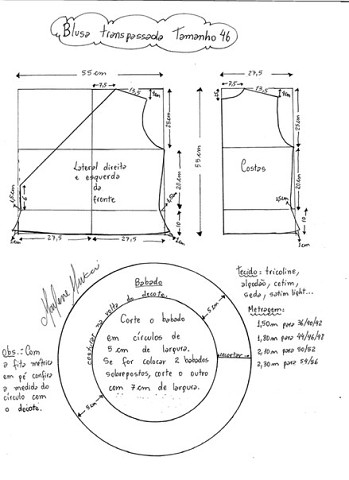 Blusa transpassada Tamanho 46
55 cm
27,5
7,5
13,5
4cm
7,5
13,5
4cm
25cm
25cm
55 cm
Lateral direita
e esquerda
da
frente
Costas
20cm
20cm
6
10
10
27,5
27,5
Marlene Mukai
Babado
costurar na volta do decote.
5 cm
Corte o babado
em círculos de
5 cm de largura.
Se for colocar 2 babados
sobrepostos, corte o outro
com 7 cm de largura.
5 cm
cortar
Obs.: Com
a fita métrica
em pé confira
a medida do
círculo com
o decote.
Tecido: tricoline,
algodão, cetim,
seda, satim light...
Metragem:
1,50m para 36/40/42
1,80m para 44/46/48
2,10m para 50/52
2,30m para 54/56